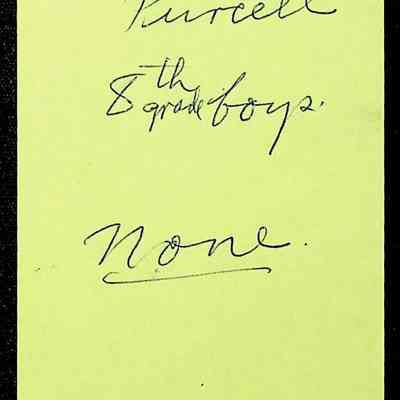 Purcell
8th grade boys.
None.